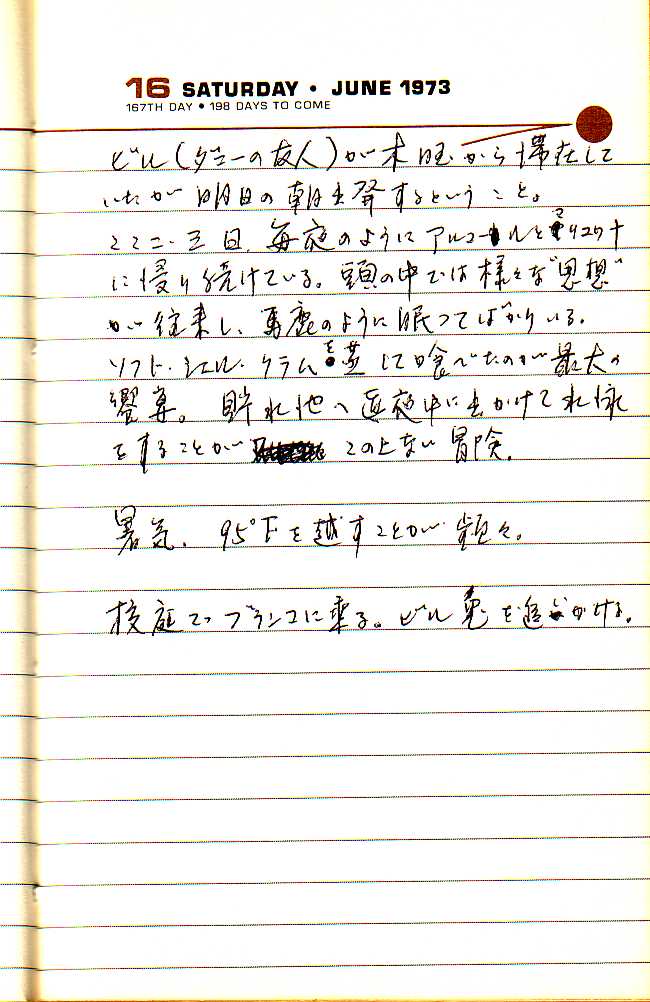 16 SATURDAY • JUNE 1973
167TH DAY • 198 DAYS TO COME
ビル(ダニーの友人)が木曜から滞在して
いたが明日の朝出発するということ。
ここ二、三日、毎夜のようにアルコールとマリワナ
に浸り続けている。頭の中では様々な"思想"
が往来し、馬鹿のように眠ってばかりいる。
ソフト・シェル・クラムを蒸して喰べたのが最大の
饗宴。貯水池へ真夜中に出かけて水泳
をすることが この上ない冒険。
暑気、95°Fを越すことが 頻々。
校庭でブランコに乗る。ビル兎を追いかける。